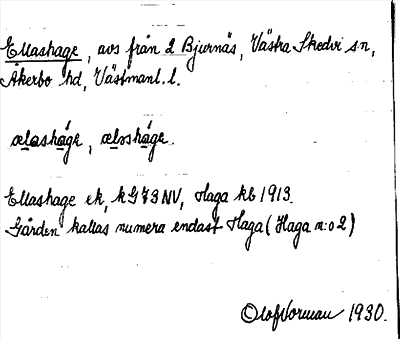 Ellashage, avs från 2 Bjurnäs, Västra Skedvi sn,
Åkerbo hd, Västmanl. l.
ælashåge, ælsshåge.
Ellashage ek, kG73NV, Haga kb 1913.
Gården kallas numera endast Haga (Haga n:o 2)
Olof Norman 1930.